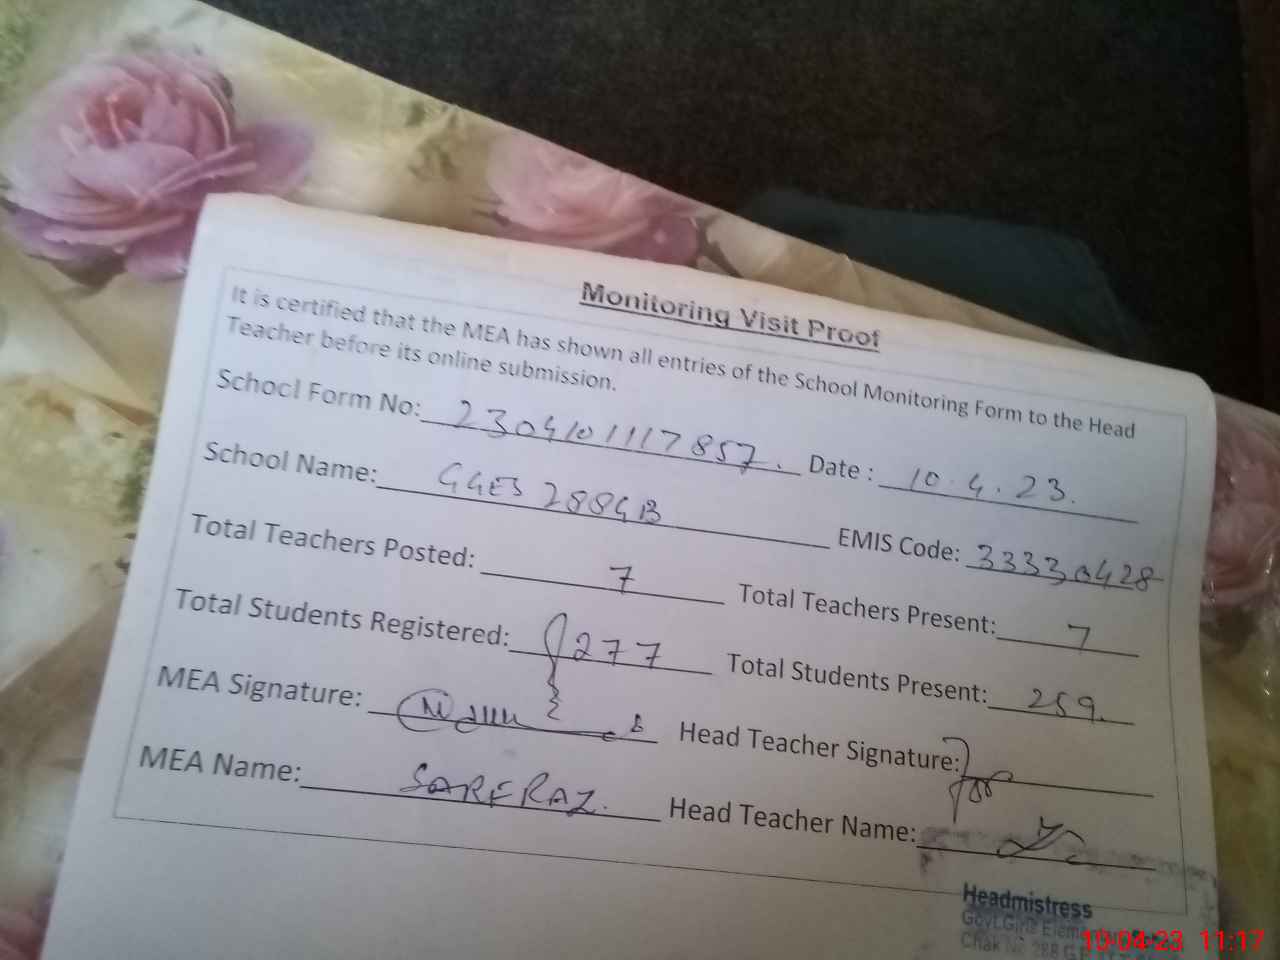 Monitoring Visit Proof
It is certified that the MEA has shown all entries of the School Monitoring Form to the Head
Teacher before its online submission.
School Form No: 2304101117857. Date : 10.4.23.
School Name: GGES 288GB EMIS Code: 33330428
Total Teachers Posted: 7 Total Teachers Present: 7
Total Students Registered: 277 Total Students Present: 259.
MEA Signature: Head Teacher Signature:
MEA Name: SARFRAZ. Head Teacher Name:
Headmistress
Govt.Girls
Chak No 288 G.B
10-04-23 11:17